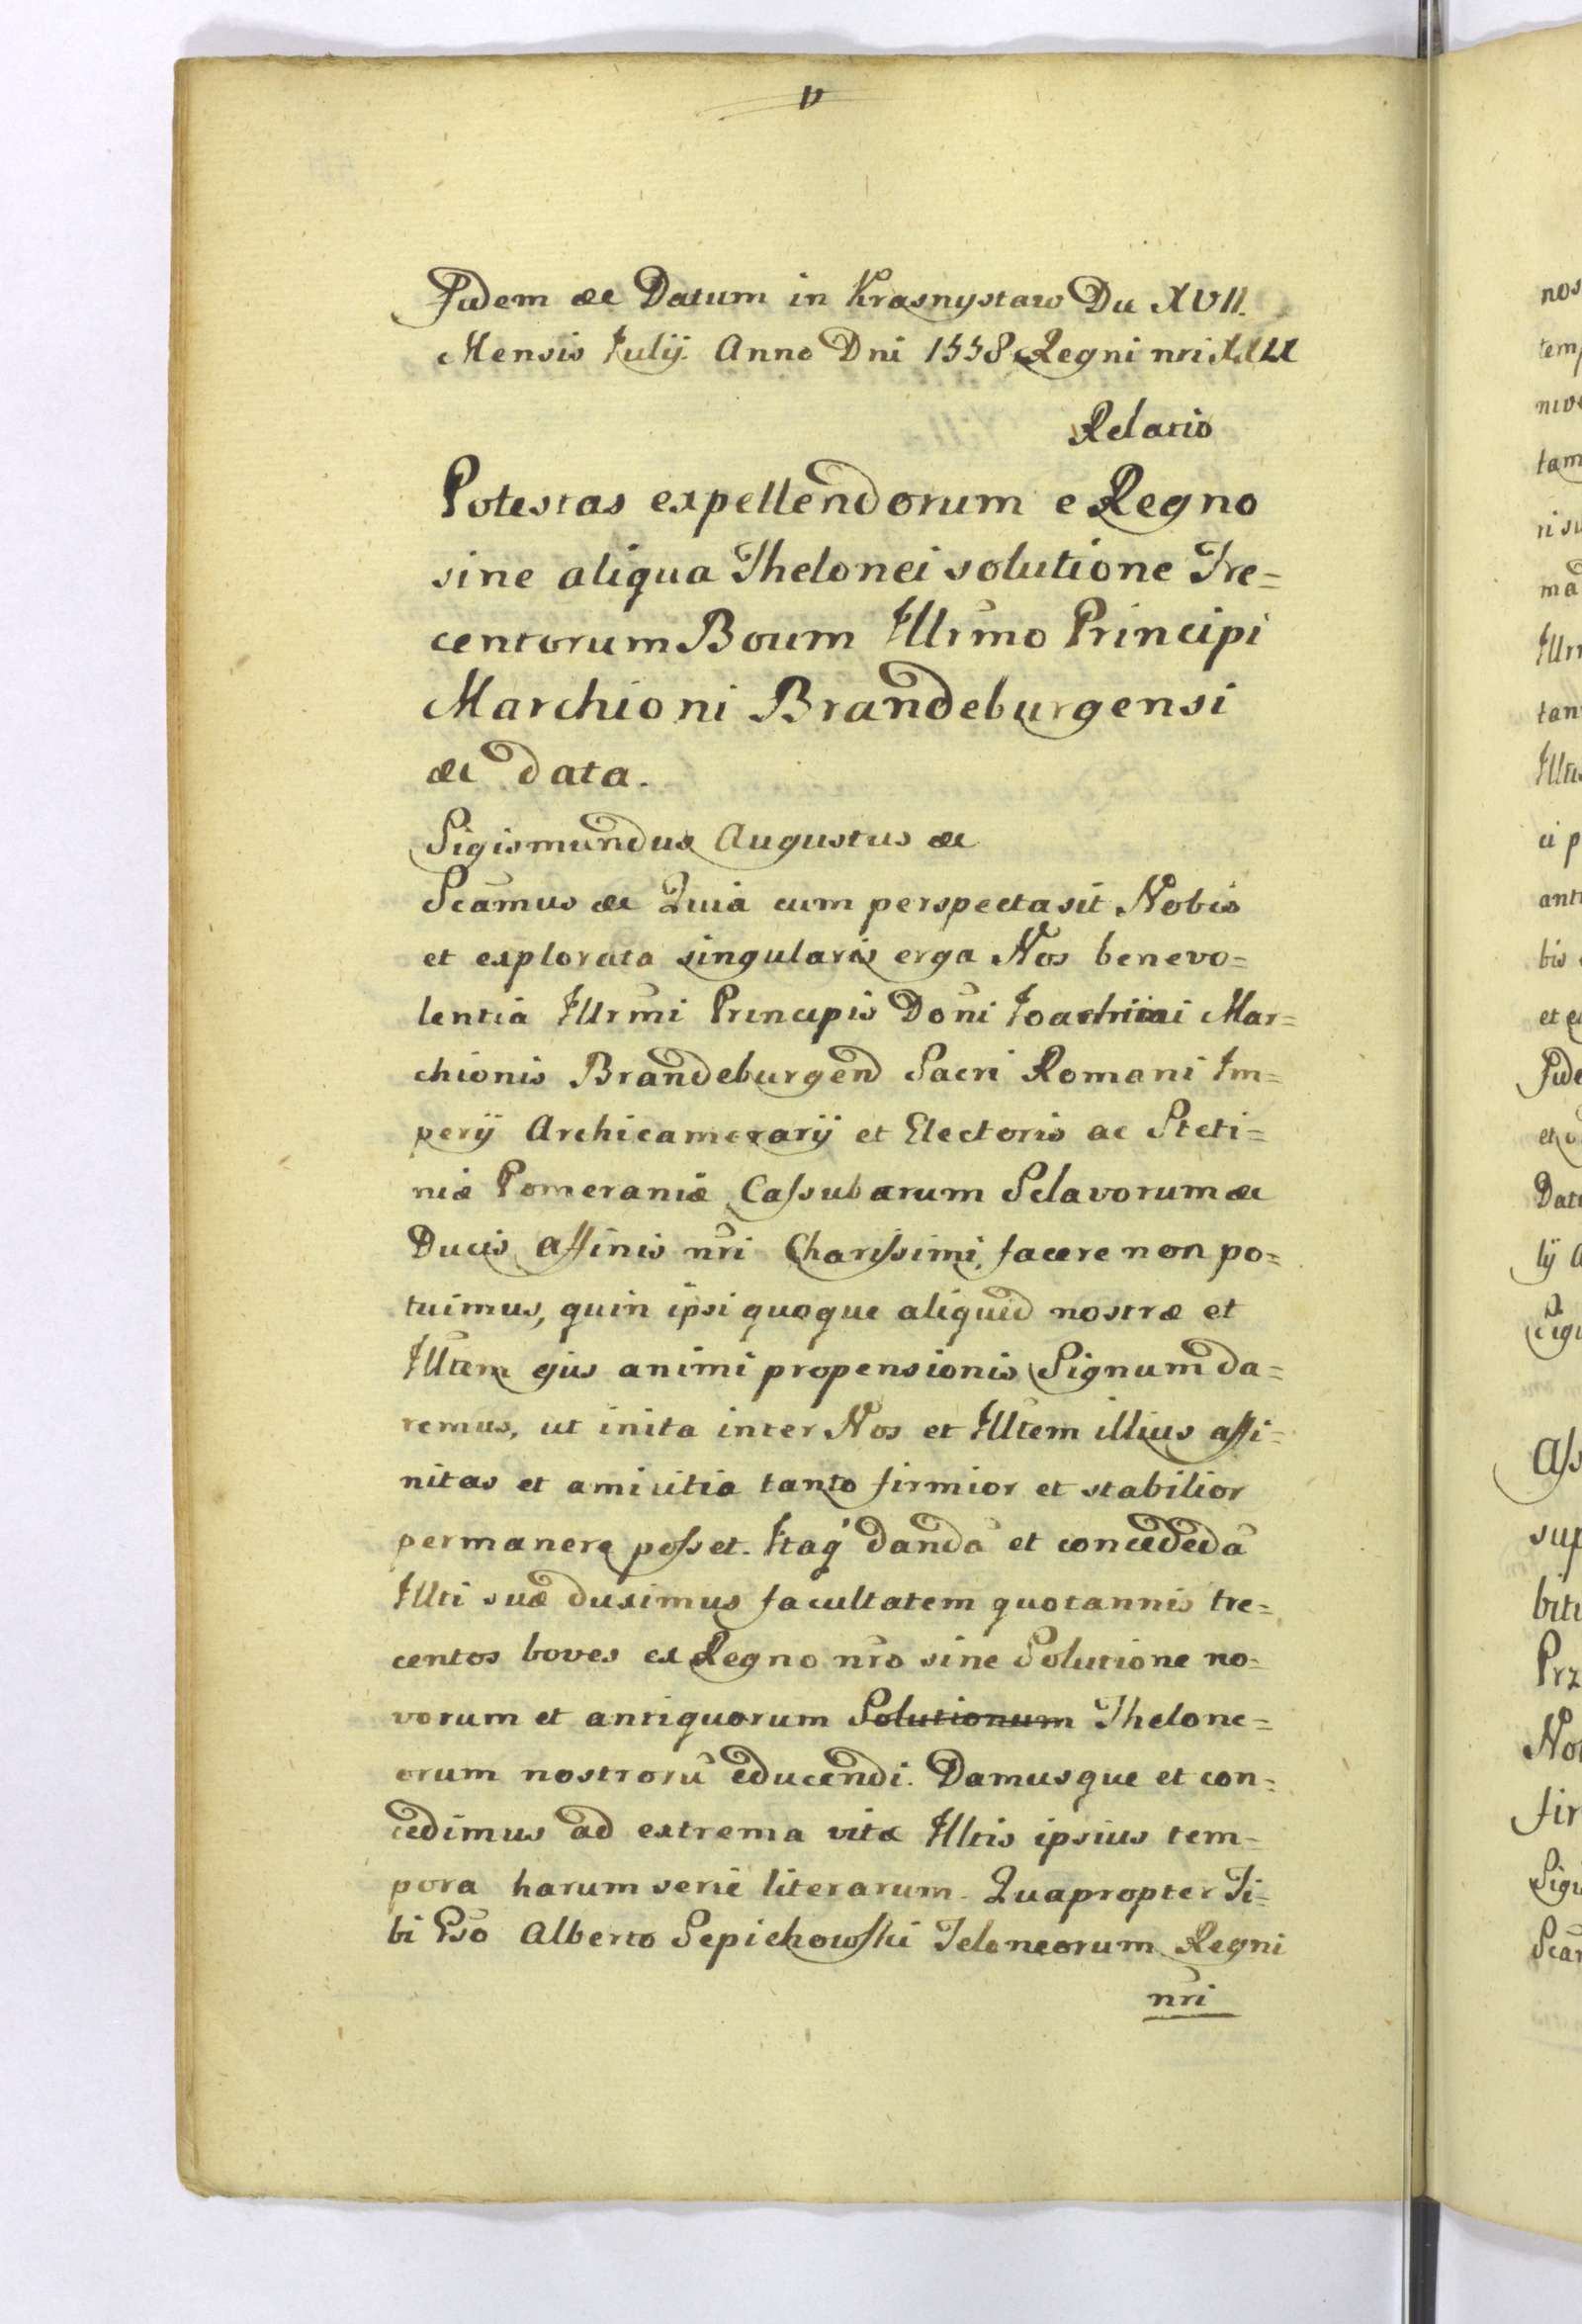 Fidem &c Datum in Krasnystaw Die XVII.
Mensis Julij. Anno Dni 1558 Regni nri XXIX
Relatio
Potestas expellendorum e Regno
sine aliqua Thelonei solutione Tre=
centorum Boum Illrmo Principi
Marchioni Brandeburgensi
&c data.
Sigismundus Augustus &c
Scamus &c Quia cum perspecta sit Nobis
et explorata singularis erga Nos benevo=
lentia Illrmi Principis Doni Joachimi Mar=
chionis Brandeburgend Sacri Romani Im=
perij Archicamerarij et Electoris ac Steti=
niæ Pomeraniæ Caſsubarum Sclavorum &c
Ducis Affinis nri Chariſsimi, facere non po=
tuimus, quin ipsi quoque aliquid nostræ et
Illtem ejus animi propensionis Signum da=
remus, ut inita inter Nos et Illtem illius affi=
nitas et amicitia tanto firmior et stabilior
permanere poſset. Itaq' danda et concededa
Illti suæ duximus facultatem quotannis tre=
centos boves ex Regno nro sine Solutione no=
vorum et antiquorum Solutionum Thelone=
orum nostroru educendi. Damusque et con=
cedimus ad extrema vitæ Illtis ipsius tem=
pora harum serie literarum. Quapropter Ti=
bi Gso Alberto Sepichowſki Teloneorum Regni
nri